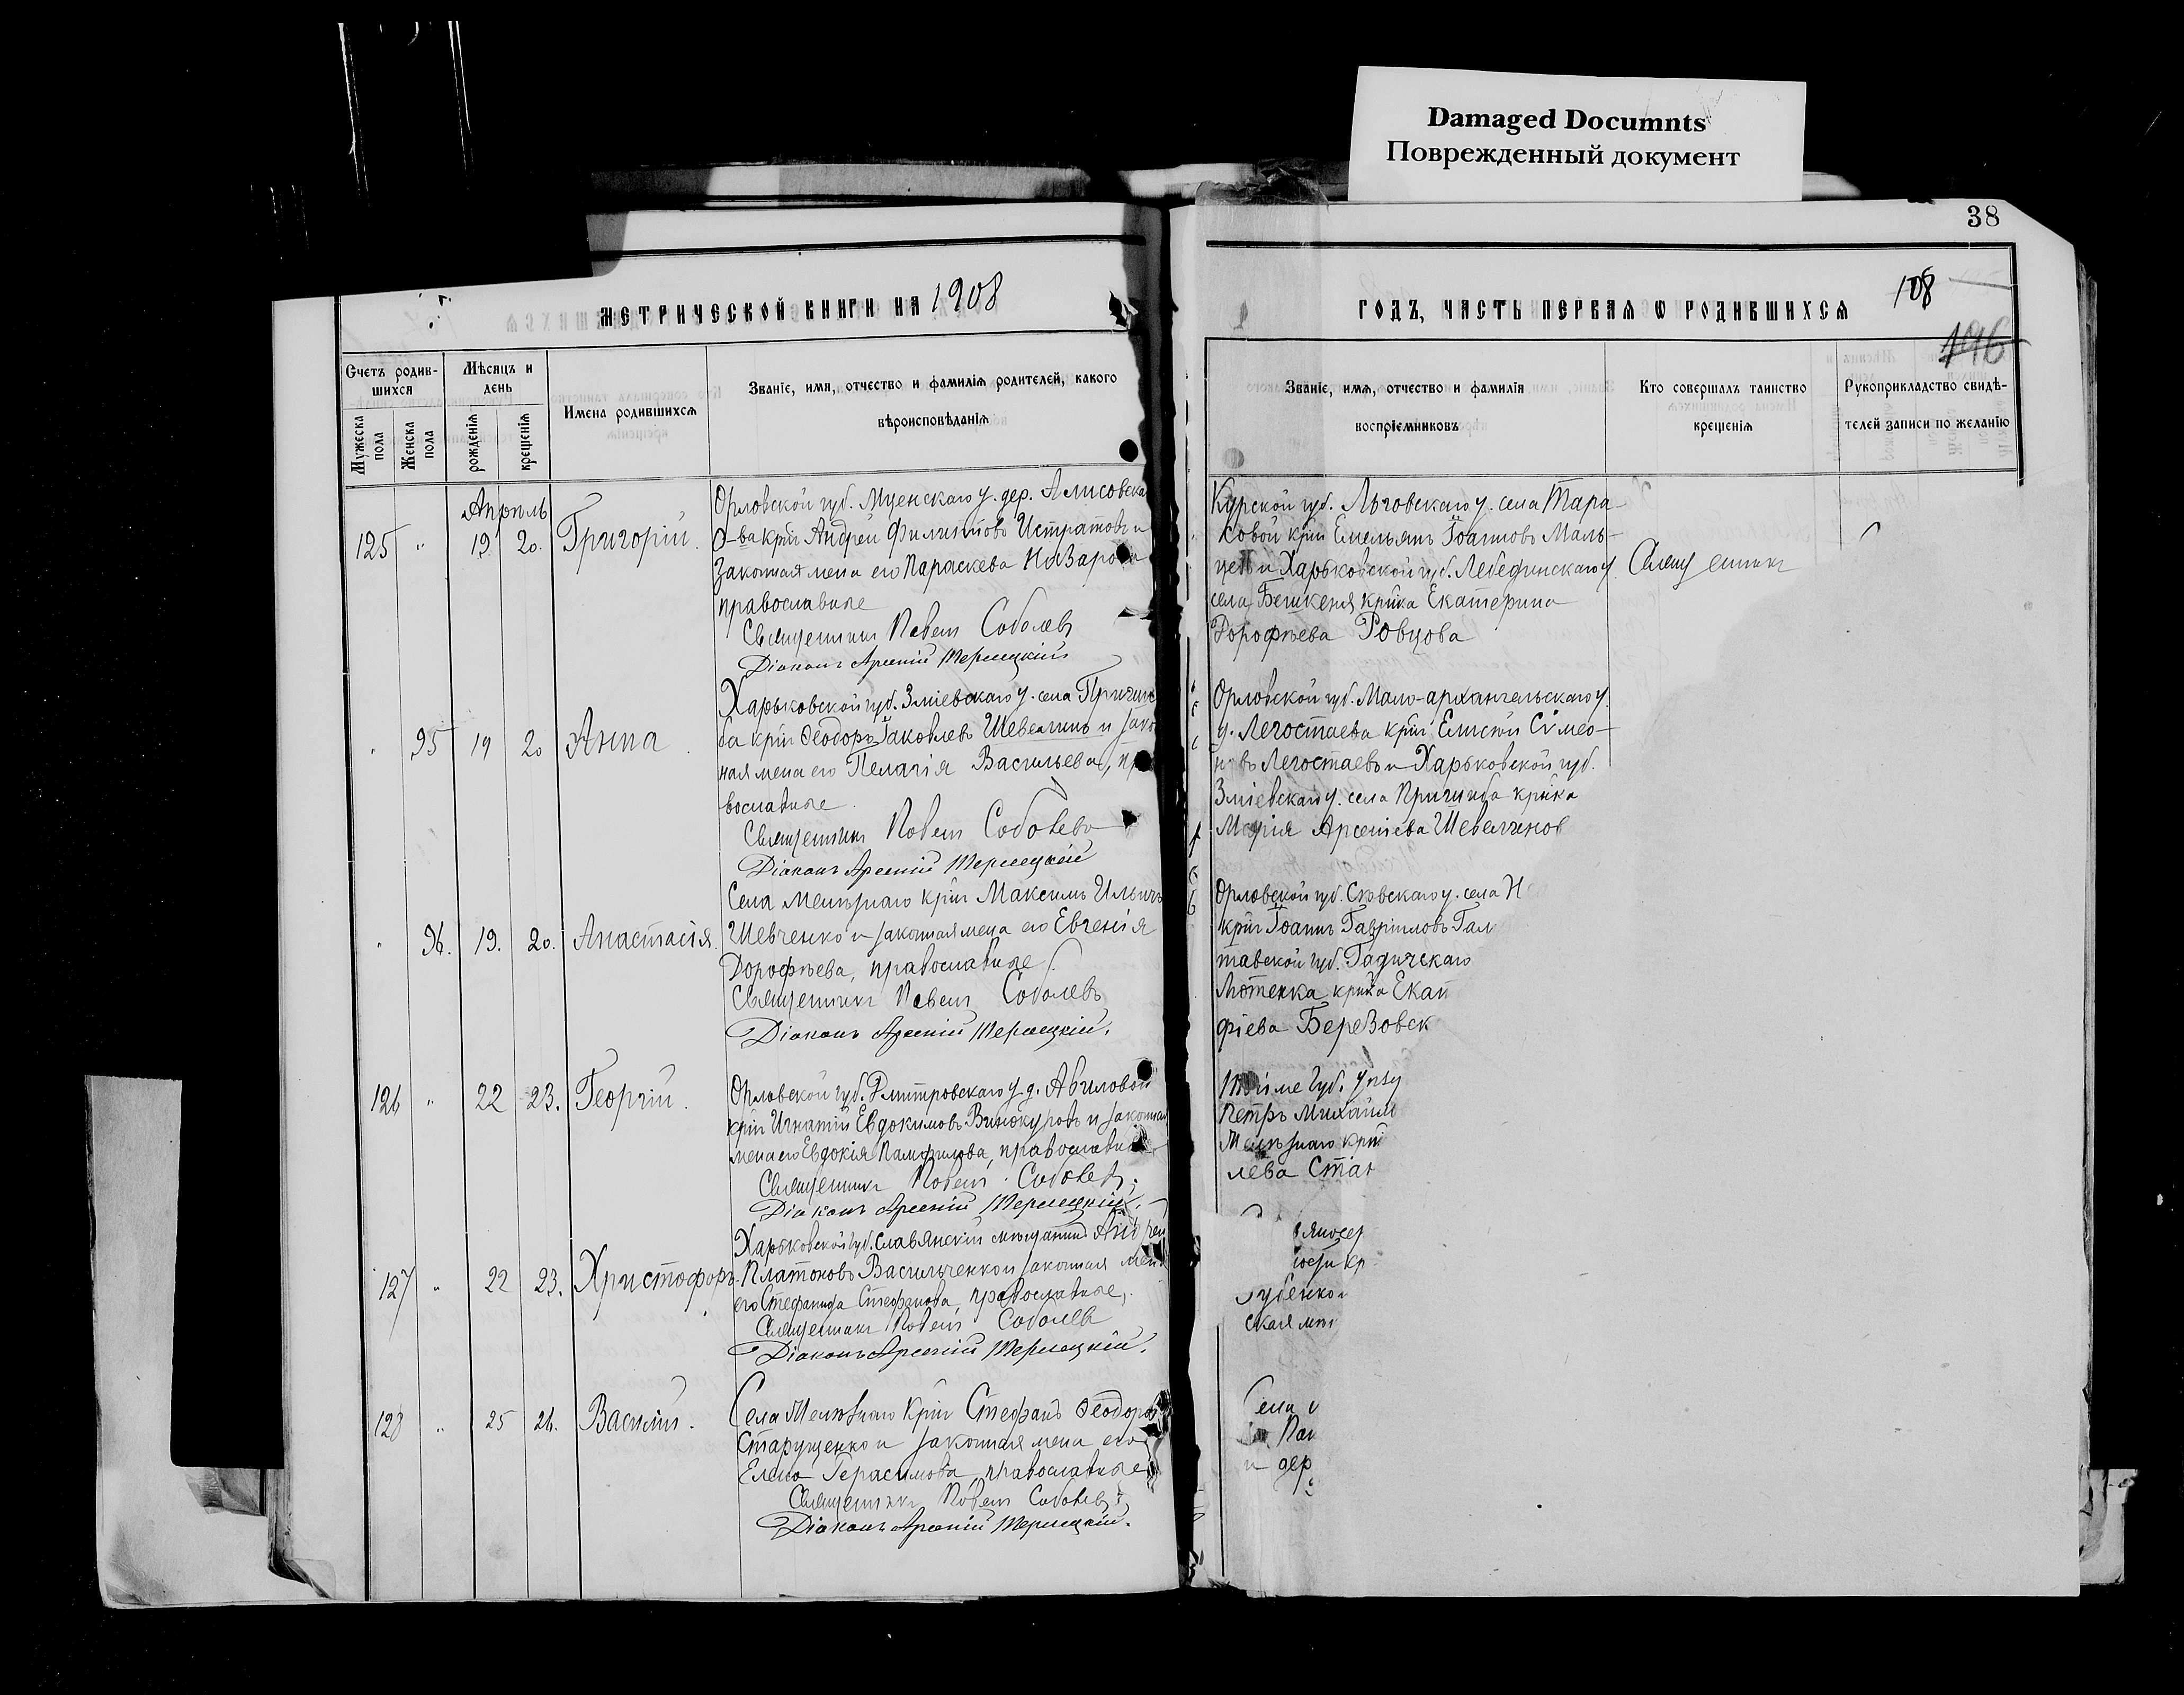 Damaged Documnts
Поврежденный документ
38
МЕТРИЧЕСКОЙ КНИГИ НА 1908
ГОДЪ, ЧАСТЬ ПЕРВАЯ Ѡ РОДИВШИХСЯ
108
196
Счетъ родив-
шихся
Мужеска пола
Женска пола
Мѣсяцъ и
день
рожденія
крещенія
Имена родившихся
Званіе, имя, отчество и фамилія родителей, какого
вѣроисповѣданія
Званіе, имя, отчество и фамилія
воспріемниковъ
Кто совершалъ таинство
крещенія
Рукоприкладство свидѣ-
телей записи по желанію
Апрѣль
125 " 19 20. Григорій.
Орловской губ. Мценскаго у. дер.
кр҃н Андрей Филиповъ Истратовъ и
законная жена его Параскева Назарова
православные
Священникъ Павелъ Соболевъ
Діаконъ Арсеній Терлецкій
Курской губ. Льговскаго у. села Тара-
ковой кр҃н Емельянъ Іоанновъ Маль-
цевъ и Харьковской губ. Лебединскаго у.
села Бешкеня кр҃нка Екатерина
Дорофѣева Ровцова
Священникъ
" 95 19 20 Анна.
Харьковской губ. Зміевскаго у. села Пришиба
кр҃н Ѳеодоръ Іаковлевъ Шевелинъ и зако
ная жена его Пелагія Васильева, пра
вославные.
Священникъ Павелъ Соболевъ
Діаконъ Арсеній Терлецкій
Орловской губ. Мало-архангельскаго у.
д. Легостаева кр҃н Елисей Сѵмео-
новъ Легостаевъ и Харьковской губ.
Зміевскаго у. села Пришиба кр҃нка
Марія Арсеніева Шевелинов
" 96. 19. 20. Анастасія.
Села Мелѣзнаго кр҃н Максимъ Ильичъ
Шевченко и законная жена его Евгенія
Дорофѣева, православные.
Священникъ Павелъ Соболевъ
Діаконъ Арсеній Терлецкій.
Орловской губ. Сѣвскаго у. села Н
кр҃н Іоаннъ Гавріиловъ Гал
тавской губ. Гадячскаго
Лютенка кр҃нка Екат
фіева Березовск
126 " 22 23. Георгій.
Орловской губ. Дмитровскаго у. д. Авиловой
кр҃н Игнатій Евдокимовъ Винокуровъ и законная
жена его Евдокія Памфилова, православные
Священникъ Павелъ Соболевъ.
Діаконъ Арсеній Терлецкій.
Тойже губ. уѣзд
Петръ Михаил
кр҃н
лева Стан
127 " 22 23. Христофоръ.
Харьковской губ. Славянскій мѣщанинъ Андрей
Платоновъ Васильченко и законная жена
его Стефанида Стефанова, православные.
Священникъ Павелъ Соболевъ
Діаконъ Арсеній Терлецкій.
губенко и
ская
128 " 25 26. Василій.
Села Мелѣзнаго кр҃н Стефанъ Ѳеодоровъ
Старущенко и законная жена его
Елена Герасимова, православные
Священникъ Павелъ Соболевъ
Діаконъ Арсеній Терлецкій.
Села
Пав
и дер